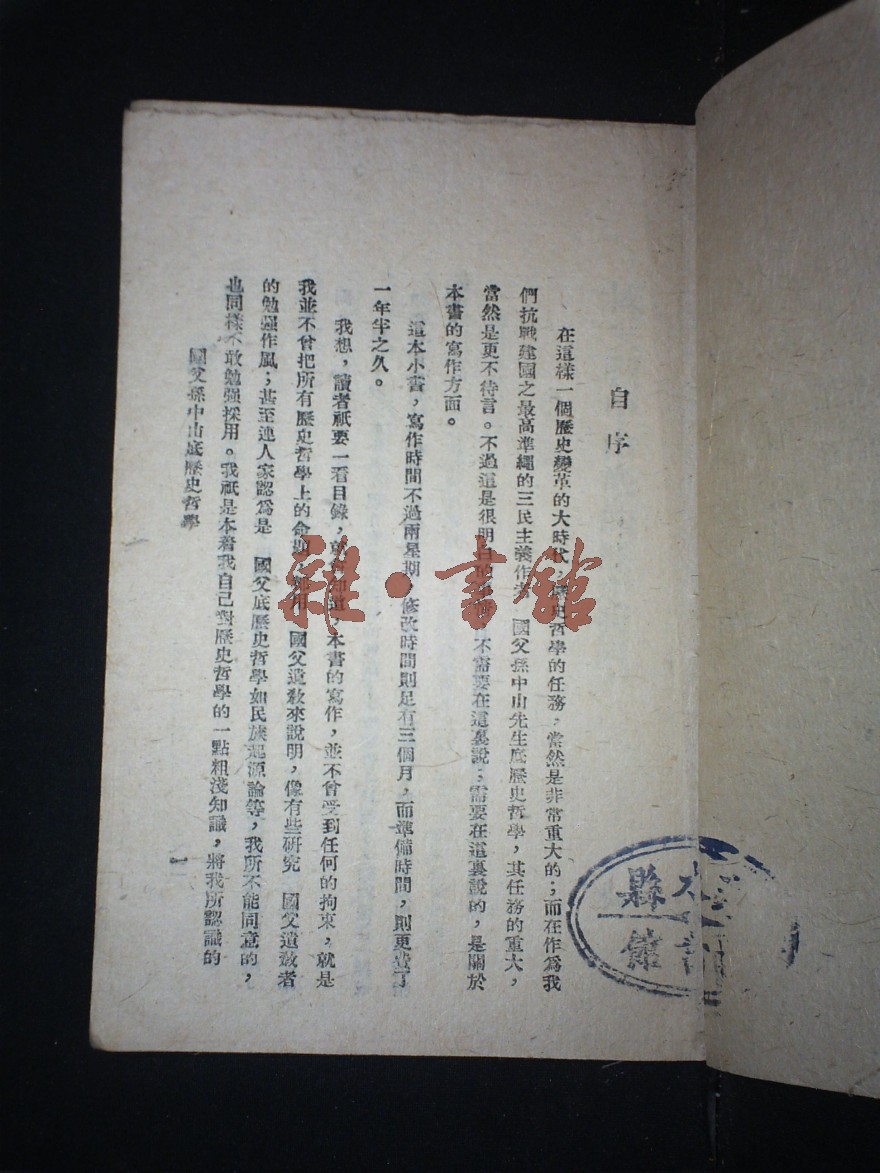 自序
在這樣一個歷史變革的大時代，歷史哲學的任務，當然是非常重大的；而在作為我
們抗戰建國之最高準繩的三民主義作者，國父孫中山先生底歷史哲學，其任務的重大，
當然是更不待言。不過這是很明白的，不需要在這裏說；需要在這裏說的，是關於
本書的寫作方面。
這本小書，寫作時間不過兩星期，修改時間則足有三個月，而準備時間，則更費了
一年半之久。
我想，讀者祇要一看目錄，就會知道，本書的寫作，並不曾受到任何的拘束，就是
我並不曾把所有歷史哲學上的命題 國父遺敎來說明，像有些研究 國父遺敎者
的勉强作風；甚至連人家認為是 國父底歷史哲學如民族起源論等，我所不能同意的，
也同樣不敢勉强採用。我祇是本着我自己對歷史哲學的一點粗淺知識，將我所認識的
國父孫中山底歷史哲學
一
雜·書館
縣
館